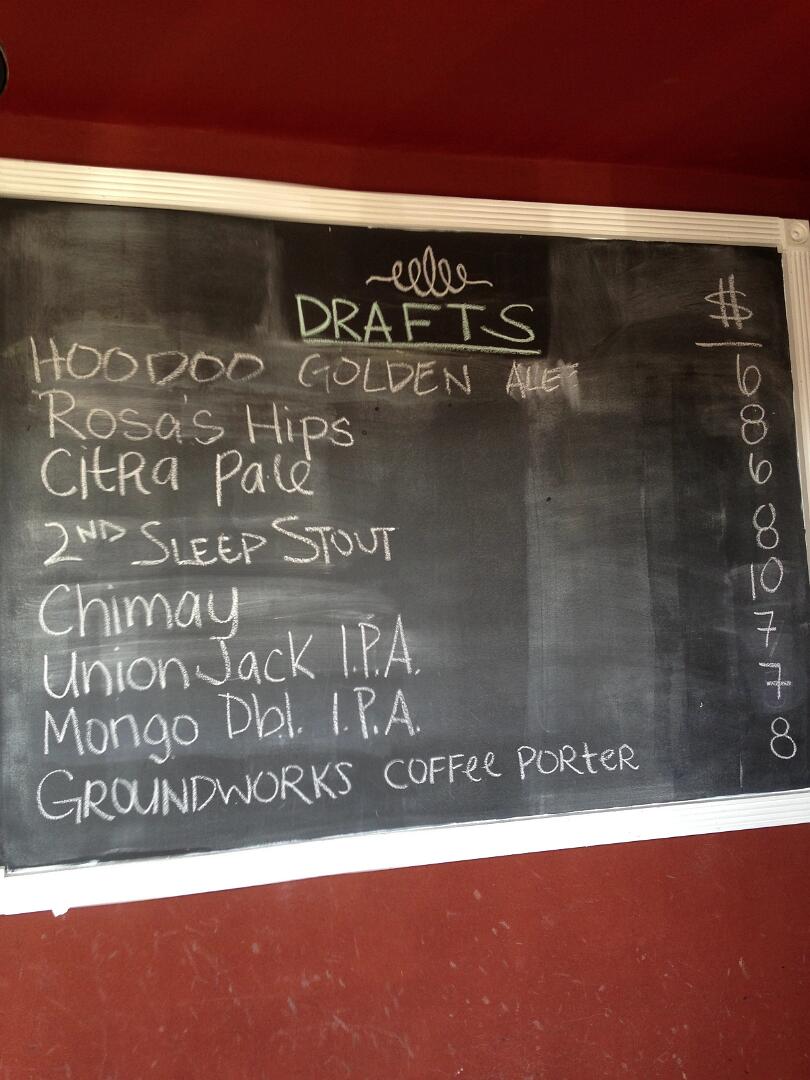 DRAFTS $
HOODOO GOLDEN ALE 6
Rosa's Hips 8
Citra Pale 6
2ND SLEEP STOUT 8
Chimay 10
Union Jack I.P.A. 7
Mongo Dbl. I.P.A. 7
GROUNDWORKS COFFee PORTER 8